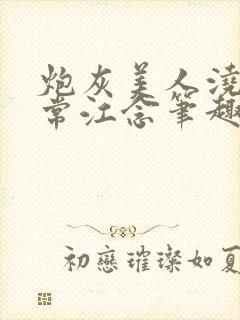 炮灰美人浇
常江念笔趣
初恋璀璨如夏